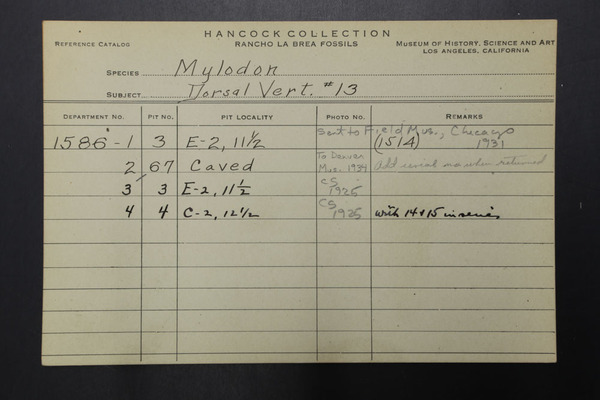 HANCOCK COLLECTION
REFERENCE CATALOG RANCHO LA BREA FOSSILS MUSEUM OF HISTORY, SCIENCE AND ART
LOS ANGELES, CALIFORNIA
SPECIES Mylodon
SUBJECT Dorsal Vert. #13
DEPARTMENT NO. PIT NO. PIT LOCALITY PHOTO NO. REMARKS
Sent to Field Mus., Chicago
1586-1 3 E-2, 11½ (1514) 1931
2 67 Caved To Denver Mus. 1934 Add serial no. when returned
3 3 E-2, 11½ CS 1925
4 4 C-2, 12½ CS 1925 with 14+15 in series